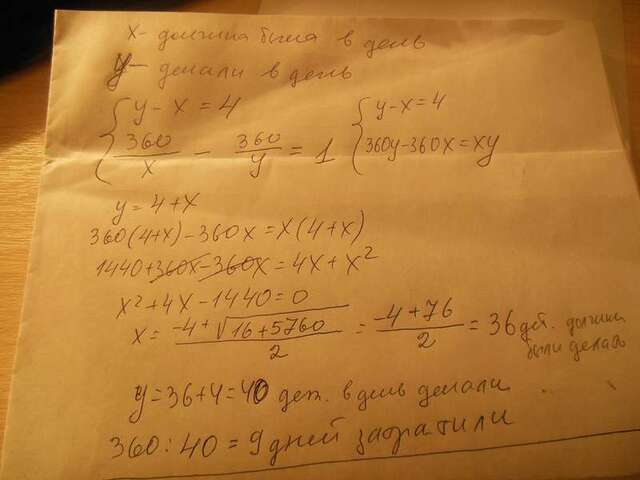 x - должна была в день
y - делали в день
{ y - x = 4 { y - x = 4
360/x - 360/y = 1 360y - 360x = xy
y = 4 + x
360(4+x) - 360x = x(4+x)
1440 + 360x - 360x = 4x + x²
x² + 4x - 1440 = 0
x = (-4 + √(16 + 5760))/2 = (-4 + 76)/2 = 36 дет. должны
были делать
y = 36 + 4 = 40 дет. в день делали
360 : 40 = 9 дней затратили